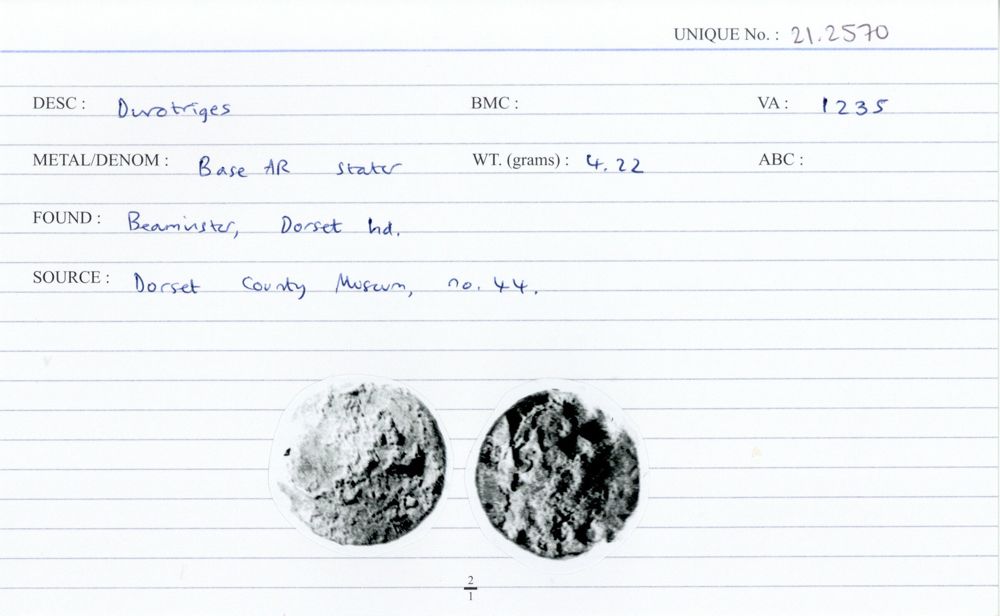 UNIQUE No. : 21.2570
DESC : Durotriges BMC : VA : 1235
METAL/DENOM : Base AR stater WT. (grams) : 4.22 ABC :
FOUND : Beaminster, Dorset hd.
SOURCE : Dorset County Museum, no. 44.
2
1